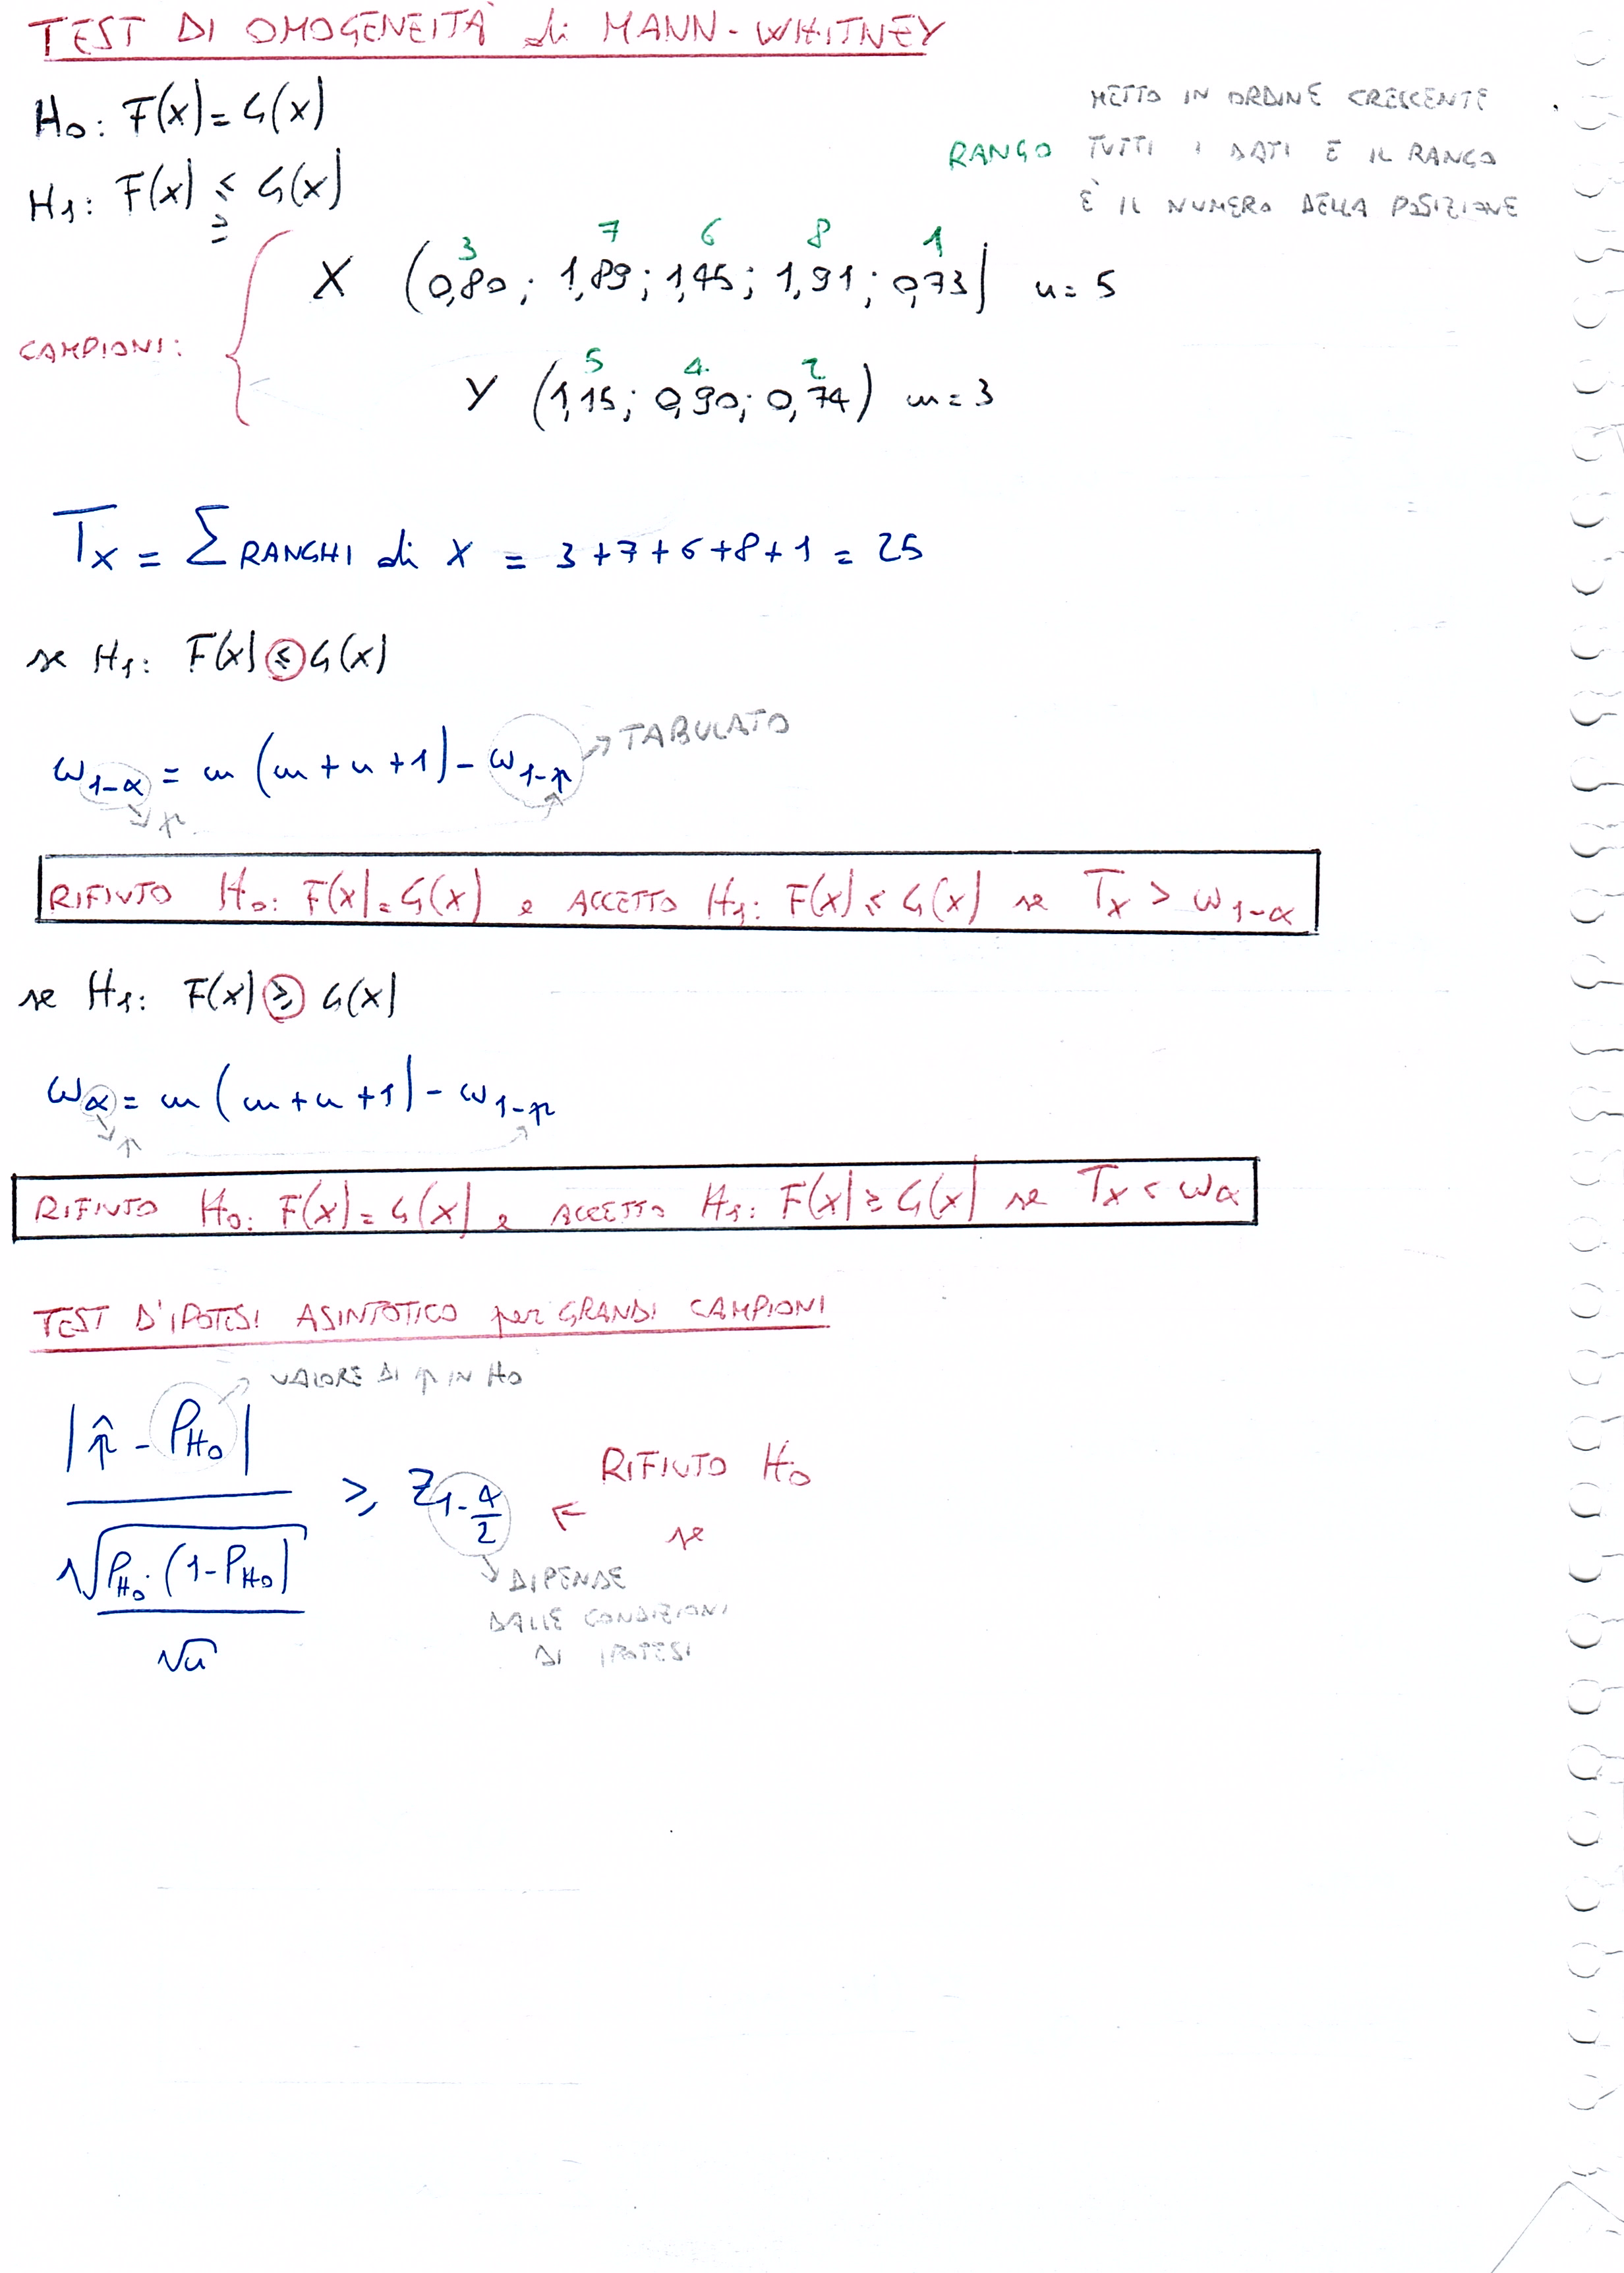 TEST DI OMOGENEITÀ di MANN-WHITNEY
H0: F(x) = G(x)
METTO IN ORDINE CRESCENTE
RANGO TUTTI I DATI E IL RANGO
È IL NUMERO DELLA POSIZIONE
H1: F(x) ≤ G(x)
≥
3 7 6 8 1
X (0,80; 1,89; 1,45; 1,91; 0,73) n = 5
CAMPIONI:
5 4 2
Y (1,15; 0,90; 0,74) m = 3
Tx = Σ RANGHI di X = 3+7+6+8+1 = 25
se H1: F(x) ≤ G(x)
TABULATO
ω1-α = m (m + n + 1) - ω1-p
p
RIFIUTO H0: F(x) = G(x) e ACCETTO H1: F(x) ≤ G(x) se Tx > ω1-α
se H1: F(x) ≥ G(x)
ωα = m (m + n + 1) - ω1-p
p
RIFIUTO H0: F(x) = G(x) e ACCETTO H1: F(x) ≥ G(x) se Tx < ωα
TEST D'IPOTESI ASINTOTICO per GRANDI CAMPIONI
VALORE DI p IN H0
|p̂ - PH0|
≥ Z1-α/2 ← RIFIUTO H0
se
√PH0·(1-PH0)
√n
DIPENDE
DALLE CONDIZIONI
DI IPOTESI